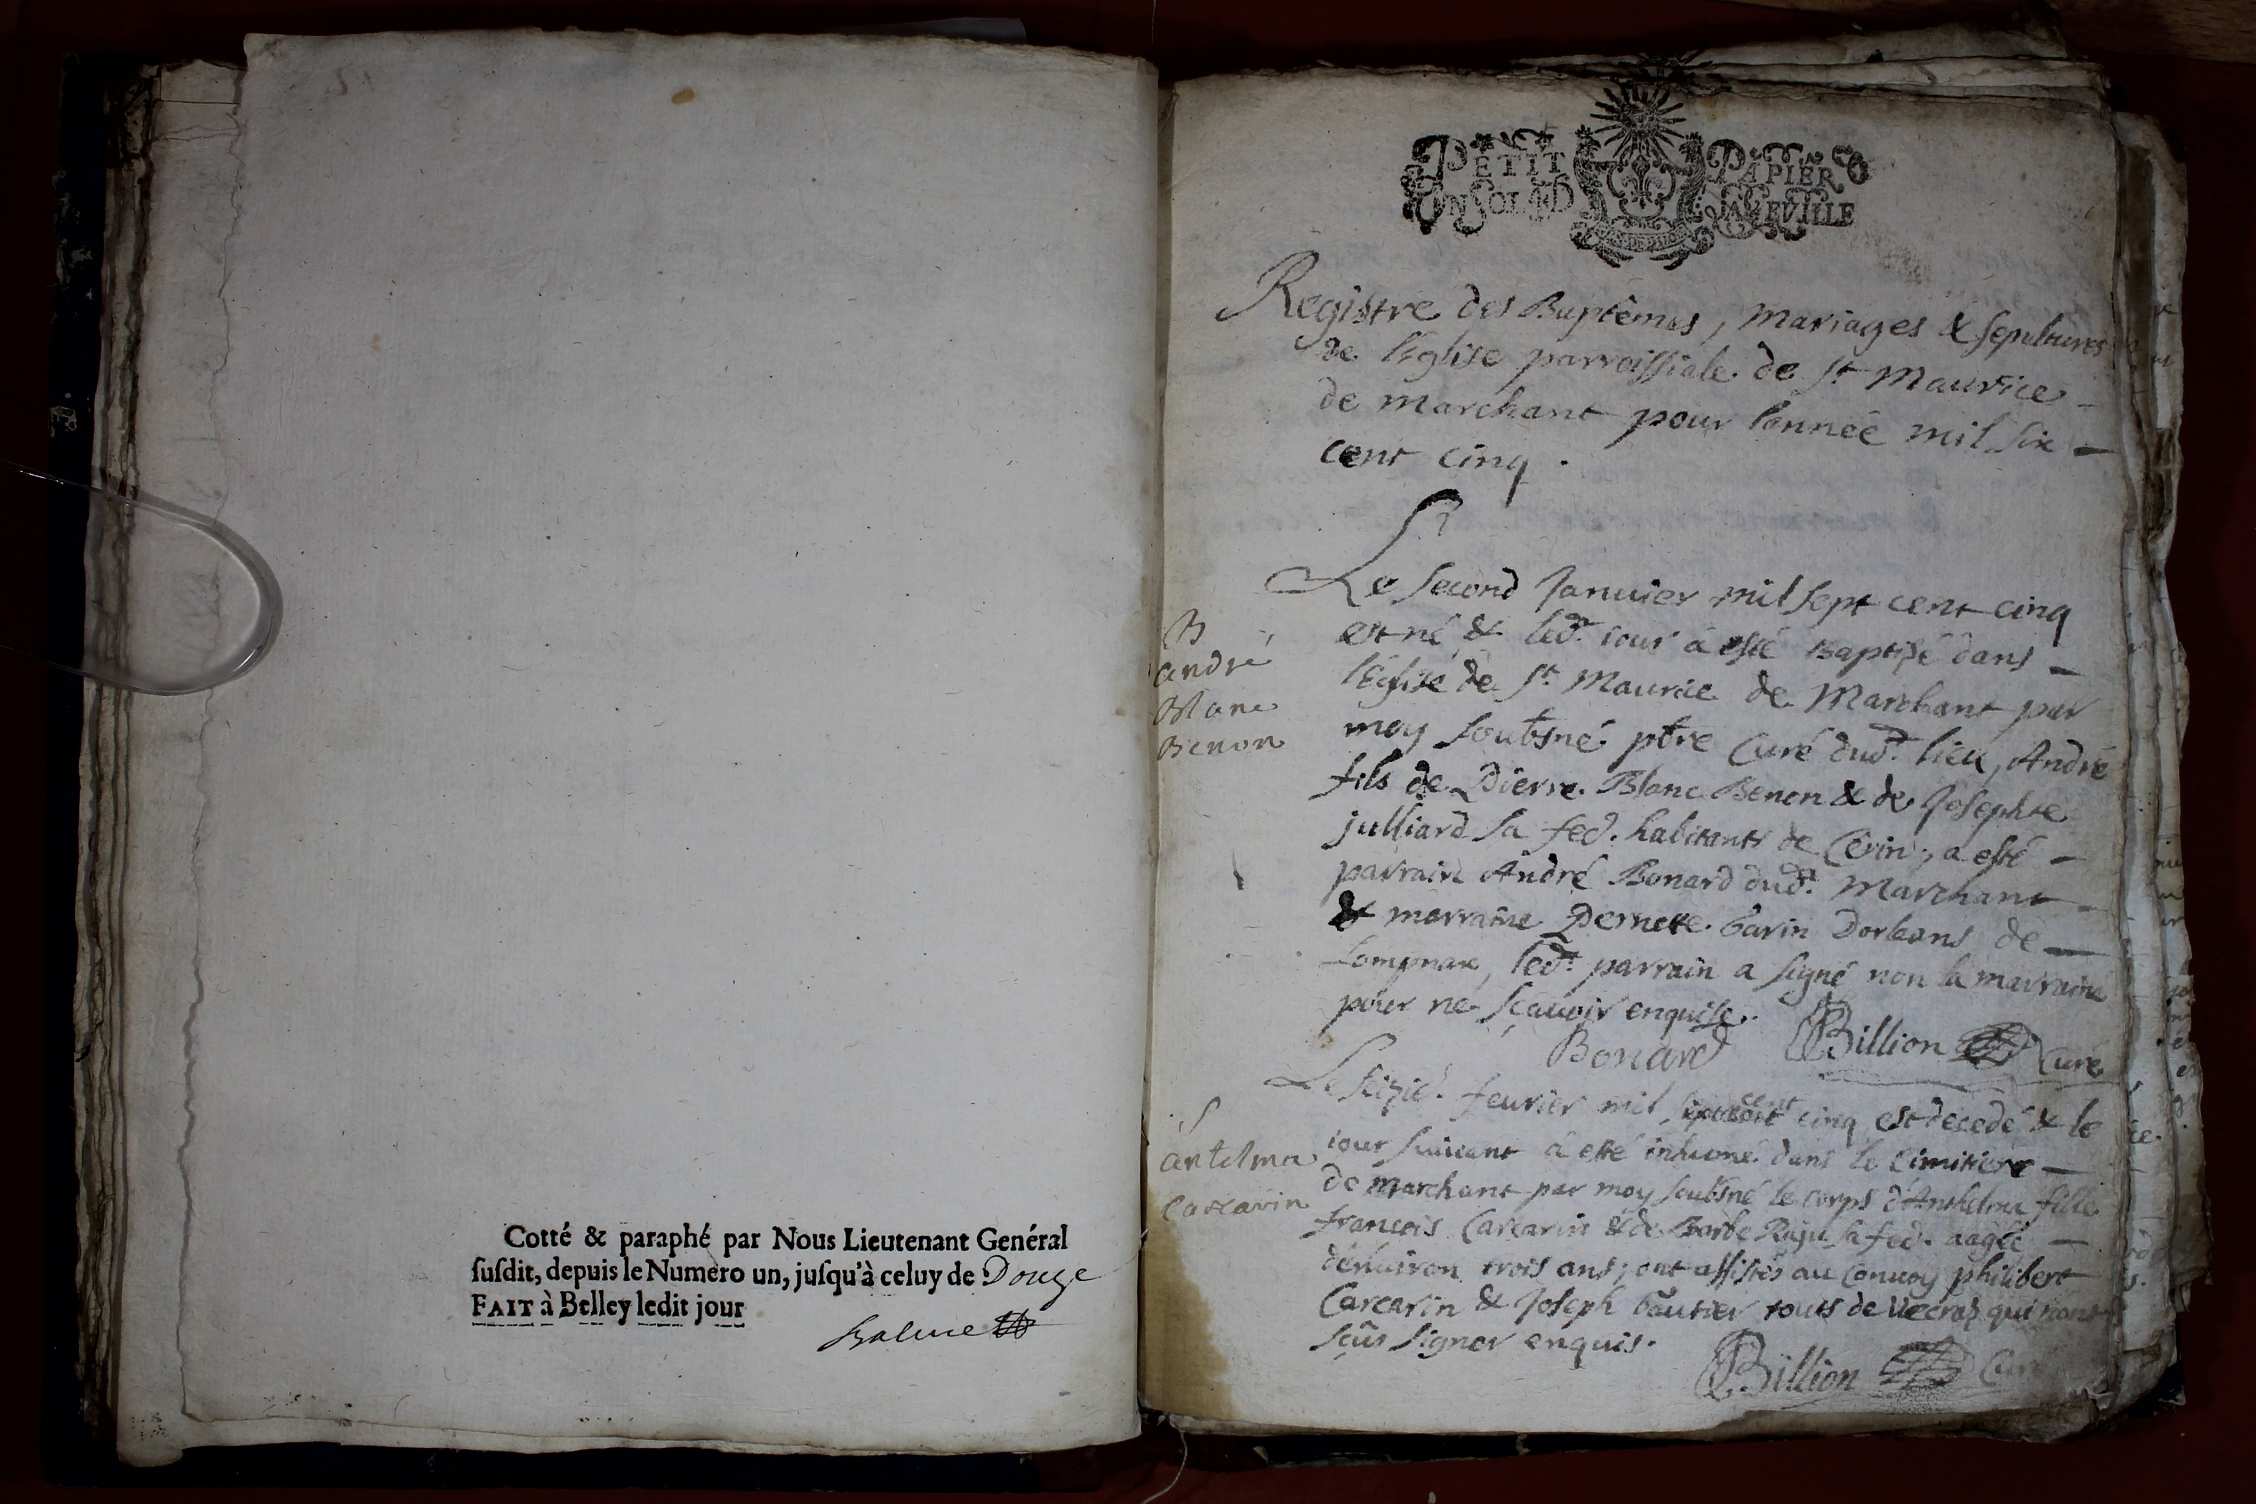 Cotté & paraphé par Nous Lieutenant Genéral
susdit, depuis le Numero un, jusqu'à celuy de Douze
FAIT à Belley ledit jour
Balme
PETIT PAPIER
UN SOL LA FEVILLE
Registre des Baptêmes, Mariages & sepultures
de l'Eglise parroissiale de St Maurice
de marchant pour l'année mil six
cent cinq.
B
andré
Blanc
Benon
Le second Januier mil sept cent cinq
est né & led.t iour a esté Baptizé dans
l'Eglise de St Maurice de Marchant par
moy soubsné ptre Curé dud.t lieu, André
fils de Pierre Blanc Benon & de Josephte
julliard sa fed. habitants de Cerin, a esté
parrain André Bonard dud.t Marchant
& marraine Pernette barin Dorleans de
Lompnax, led.t parrain a signé non la marraine
pour ne sçauoir enquise.
Bonard Billion Curé
S
antelma
Carcarin
Le seizie. feurier mil sept cent cinq est decedé & le
iour suiuant a esté inhumé dans le Cimitiere
de marchant par moy soubsné le corps d'Anthelma fille
francois Carcarin & de Barbe sa fed. aagée
d'enuiron trois ans; ont assistés au conuoy philibert
Carcarin & Joseph bautier touts de qui n'ont
sçûs signer enquis.
Billion Curé